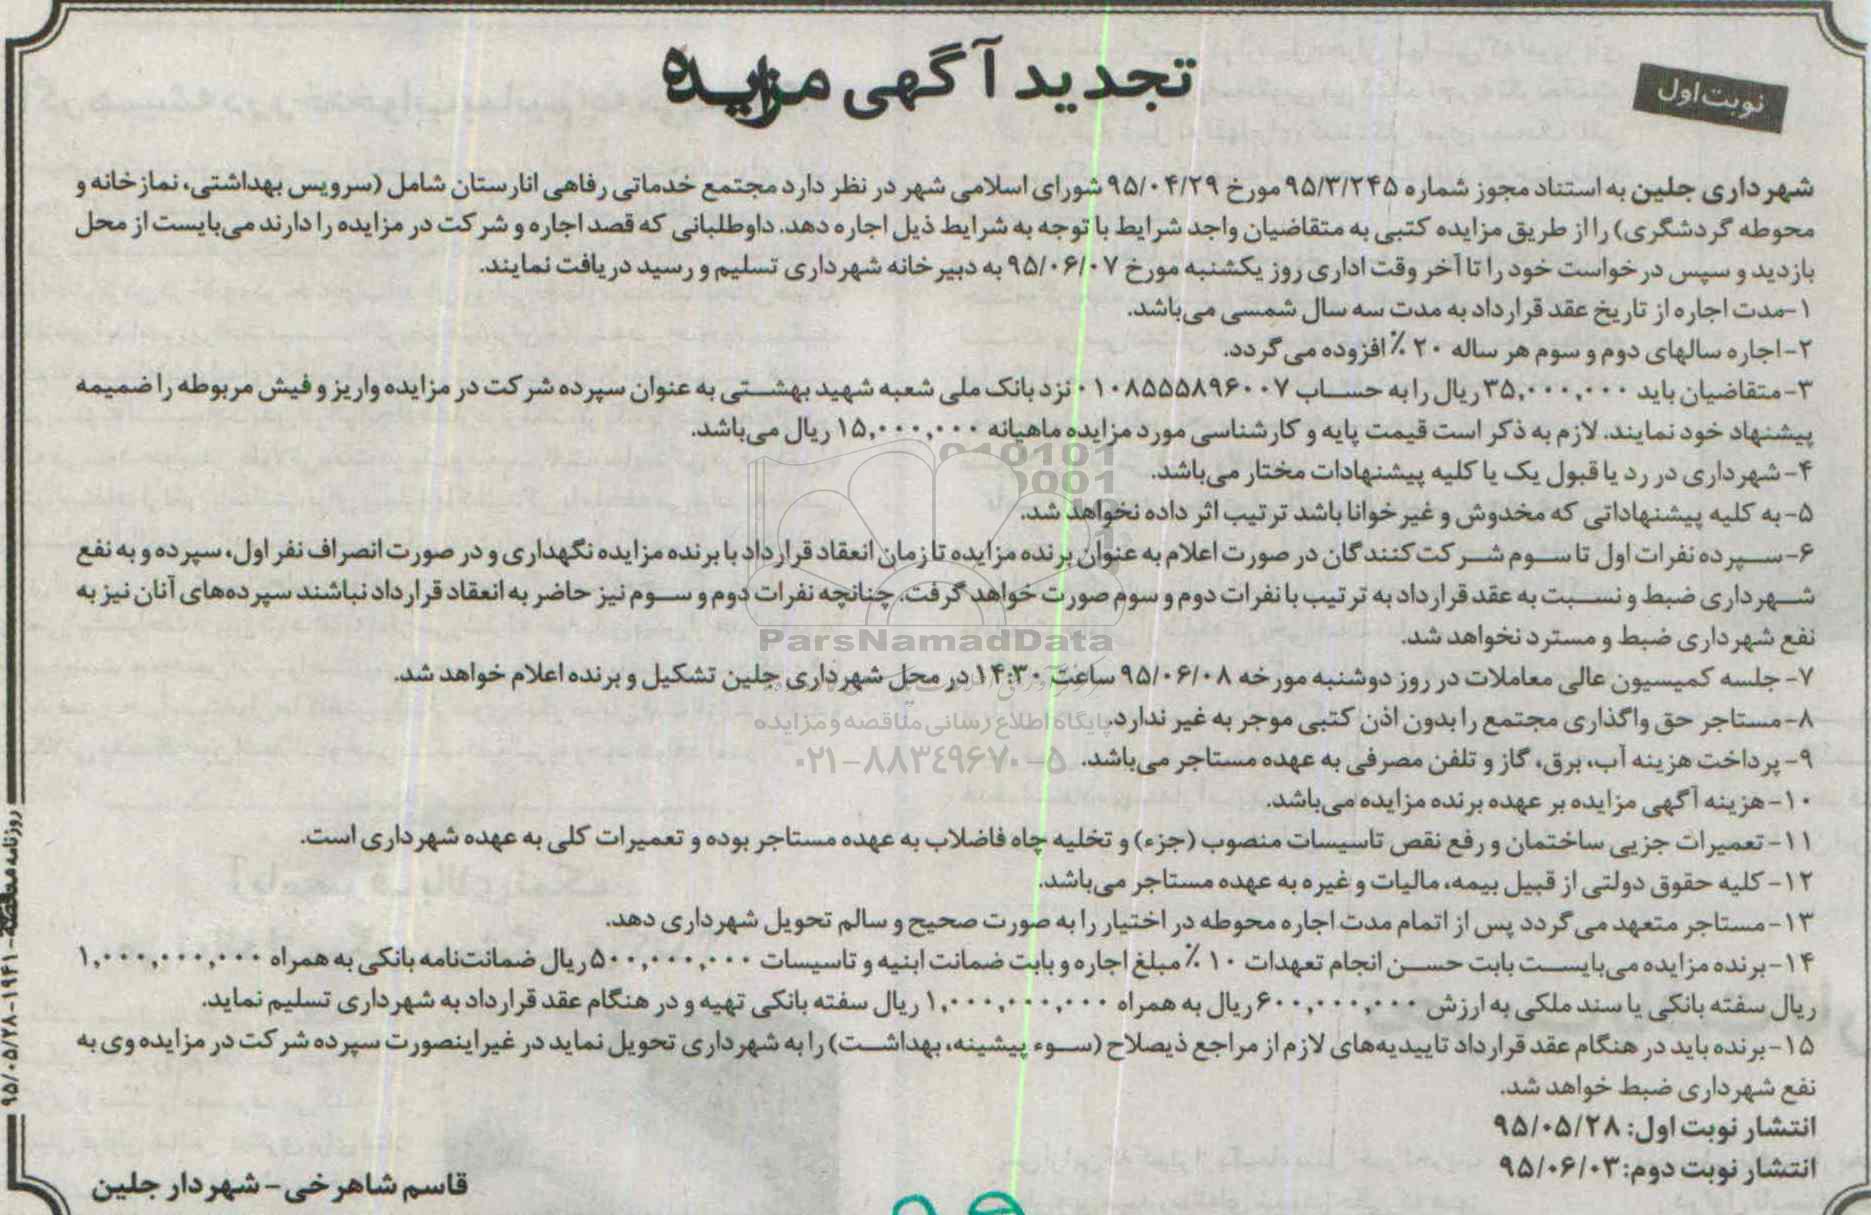 تجدید آگهی مزایده
نوبت اول
شهرداری جلین به استناد مجوز شماره ۹۵/۳/۲۴۵ مورخ ۹۵/۰۴/۲۹ شورای اسلامی شهر در نظر دارد مجتمع خدماتی رفاهی انارستان شامل (سرویس بهداشتی، نمازخانه و
محوطه گردشگری) را از طریق مزایده کتبی به متقاضیان واجد شرایط با توجه به شرایط ذیل اجاره دهد. داوطلبانی که قصد اجاره و شرکت در مزایده را دارند می‌بایست از محل
بازدید و سپس درخواست خود را تا آخر وقت اداری روز یکشنبه مورخ ۹۵/۰۶/۰۷ به دبیرخانه شهرداری تسلیم و رسید دریافت نمایند.
۱-مدت اجاره از تاریخ عقد قرارداد به مدت سه سال شمسی می‌باشد.
۲-اجاره سالهای دوم و سوم هر ساله ۲۰٪ افزوده می گردد.
۳-متقاضیان باید ۳۵,۰۰۰,۰۰۰ ریال را به حساب ۰۱۰۸۵۵۵۸۹۶۰۰۷ نزد بانک ملی شعبه شهید بهشتی به عنوان سپرده شرکت در مزایده واریز و فیش مربوطه را ضمیمه
پیشنهاد خود نمایند. لازم به ذکر است قیمت پایه و کارشناسی مورد مزایده ماهیانه ۱۵,۰۰۰,۰۰۰ ریال می‌باشد.
۴-شهرداری در رد یا قبول یک یا کلیه پیشنهادات مختار می‌باشد.
۵-به کلیه پیشنهاداتی که مخدوش و غیرخوانا باشد ترتیب اثر داده نخواهد شد.
۶-سپرده نفرات اول تا سوم شرکت‌کنندگان در صورت اعلام به عنوان برنده مزایده تا زمان انعقاد قرارداد با برنده مزایده نگهداری و در صورت انصراف نفر اول، سپرده وی به نفع
شهرداری ضبط و نسبت به عقد قرارداد به ترتیب با نفرات دوم و سوم صورت خواهد گرفت. چنانچه نفرات دوم و سوم نیز حاضر به انعقاد قرارداد نباشند سپرده‌های آنان نیز به
نفع شهرداری ضبط و مسترد نخواهد شد.
۷-جلسه کمیسیون عالی معاملات در روز دوشنبه مورخه ۹۵/۰۶/۰۸ ساعت ۱۴:۳۰ در محل شهرداری جلین تشکیل و برنده اعلام خواهد شد.
۸-مستاجر حق واگذاری مجتمع را بدون اذن کتبی موجر به غیر ندارد.
۹-پرداخت هزینه آب، برق، گاز و تلفن مصرفی به عهده مستاجر می‌باشد.
۱۰-هزینه آگهی مزایده بر عهده برنده مزایده می‌باشد.
۱۱-تعمیرات جزیی ساختمان و رفع نقص تاسیسات منصوب (جزء) و تخلیه چاه فاضلاب به عهده مستاجر بوده و تعمیرات کلی به عهده شهرداری است.
۱۲-کلیه حقوق دولتی از قبیل بیمه، مالیات و غیره به عهده مستاجر می‌باشد.
۱۳-مستاجر متعهد می گردد پس از اتمام مدت اجاره محوطه در اختیار را به صورت صحیح و سالم تحویل شهرداری دهد.
۱۴-برنده مزایده می‌بایست بابت حسن انجام تعهدات ۱۰٪ مبلغ اجاره و بابت ضمانت ابنیه و تاسیسات ۵۰۰,۰۰۰,۰۰۰ ریال ضمانت‌نامه بانکی به همراه ۱,۰۰۰,۰۰۰,۰۰۰
ریال سفته بانکی یا سند ملکی به ارزش ۶۰۰,۰۰۰,۰۰۰ ریال به همراه ۱,۰۰۰,۰۰۰,۰۰۰ ریال سفته بانکی تهیه و در هنگام عقد قرارداد به شهرداری تسلیم نماید.
۱۵-برنده باید در هنگام عقد قرارداد تاییدیه‌های لازم از مراجع ذیصلاح (سوء پیشینه، بهداشت) را به شهرداری تحویل نماید در غیر اینصورت سپرده شرکت در مزایده وی به
نفع شهرداری ضبط خواهد شد.
انتشار نوبت اول: ۹۵/۰۵/۲۸
انتشار نوبت دوم: ۹۵/۰۶/۰۳
قاسم شاهرخی-شهردار جلین
روزنامه مناقصه-۱۹۴۱-۹۵/۰۵/۲۸
ParsNamadData
پایگاه اطلاع رسانی مناقصه و مزایده
۰۲۱-۸۸۳۴۹۶۷۰-۵